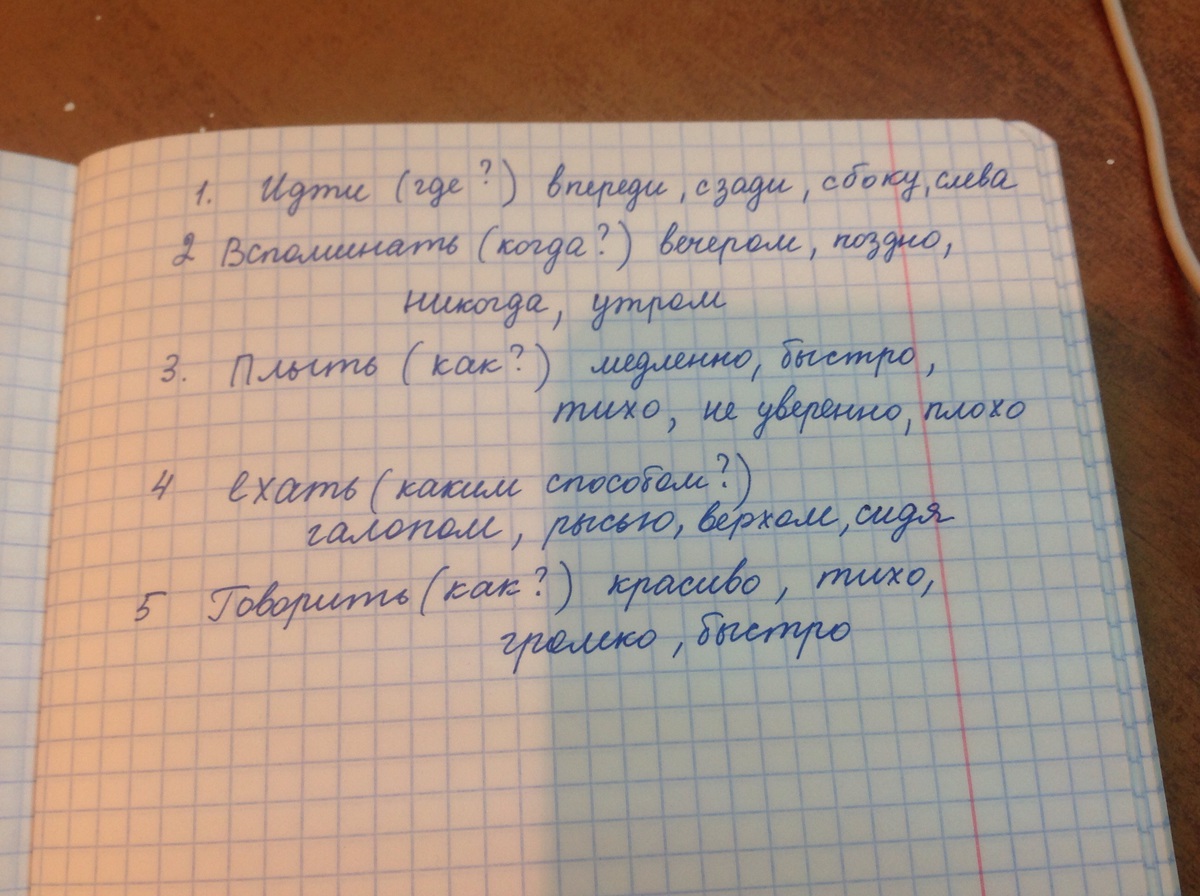 1. Идти (где?) впереди, сзади, сбоку, слева
2 Вспоминать (когда?) вечером, поздно,
никогда, утром
3. Плыть (как?) медленно, быстро,
тихо, не уверенно, плохо
4 ехать (каким способом?)
галопом, рысью, верхом, сидя
5 Говорить (как?) красиво, тихо,
громко, быстро